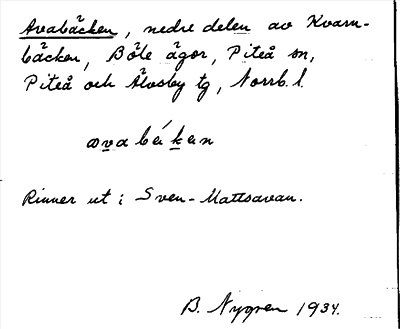 Avabäcken, nedre delen av Kvarn-
bäcken, Böle ägor, Piteå sn,
Piteå och Älvsby tg, Norrb. l.
avabékan
Rinner ut i Sven-Mattsavan.
B. Nygren 1934.